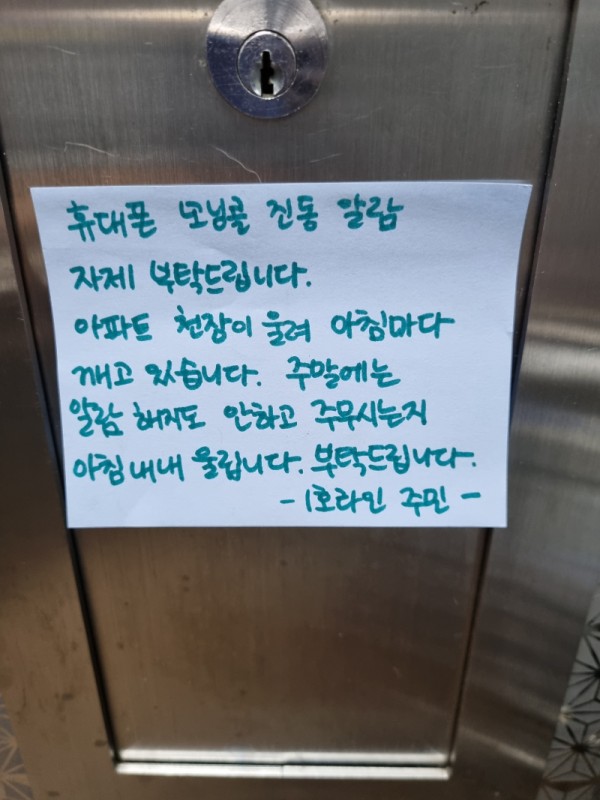 휴대폰 모닝콜 진동 알람
자제 부탁드립니다.
아파트 천장이 울려 아침마다
깨고 있습니다. 주말에는
알람 해지도 안하고 주무시는지
아침내내 울립니다. 부탁드립니다.
- 1호라인 주민 -